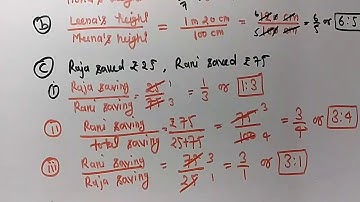 Mona's height 7
(b) Leena's height / Meena's height = 1m 20cm / 100 cm = 6 120 cm / 5 100 cm = 6/5 or 6:5
(c) Raja saved ₹25, Rani saved ₹75
(i) Raja saving / Rani saving = 25 1 / 75 3 = 1/3 or 1:3
(ii) Rani saving / total saving = ₹75 / 25+75 = 75 3 / 100 4 = 3/4 or 3:4
(iii) Rani saving / Raja saving = 75 3 / 25 1 = 3/1 or 3:1